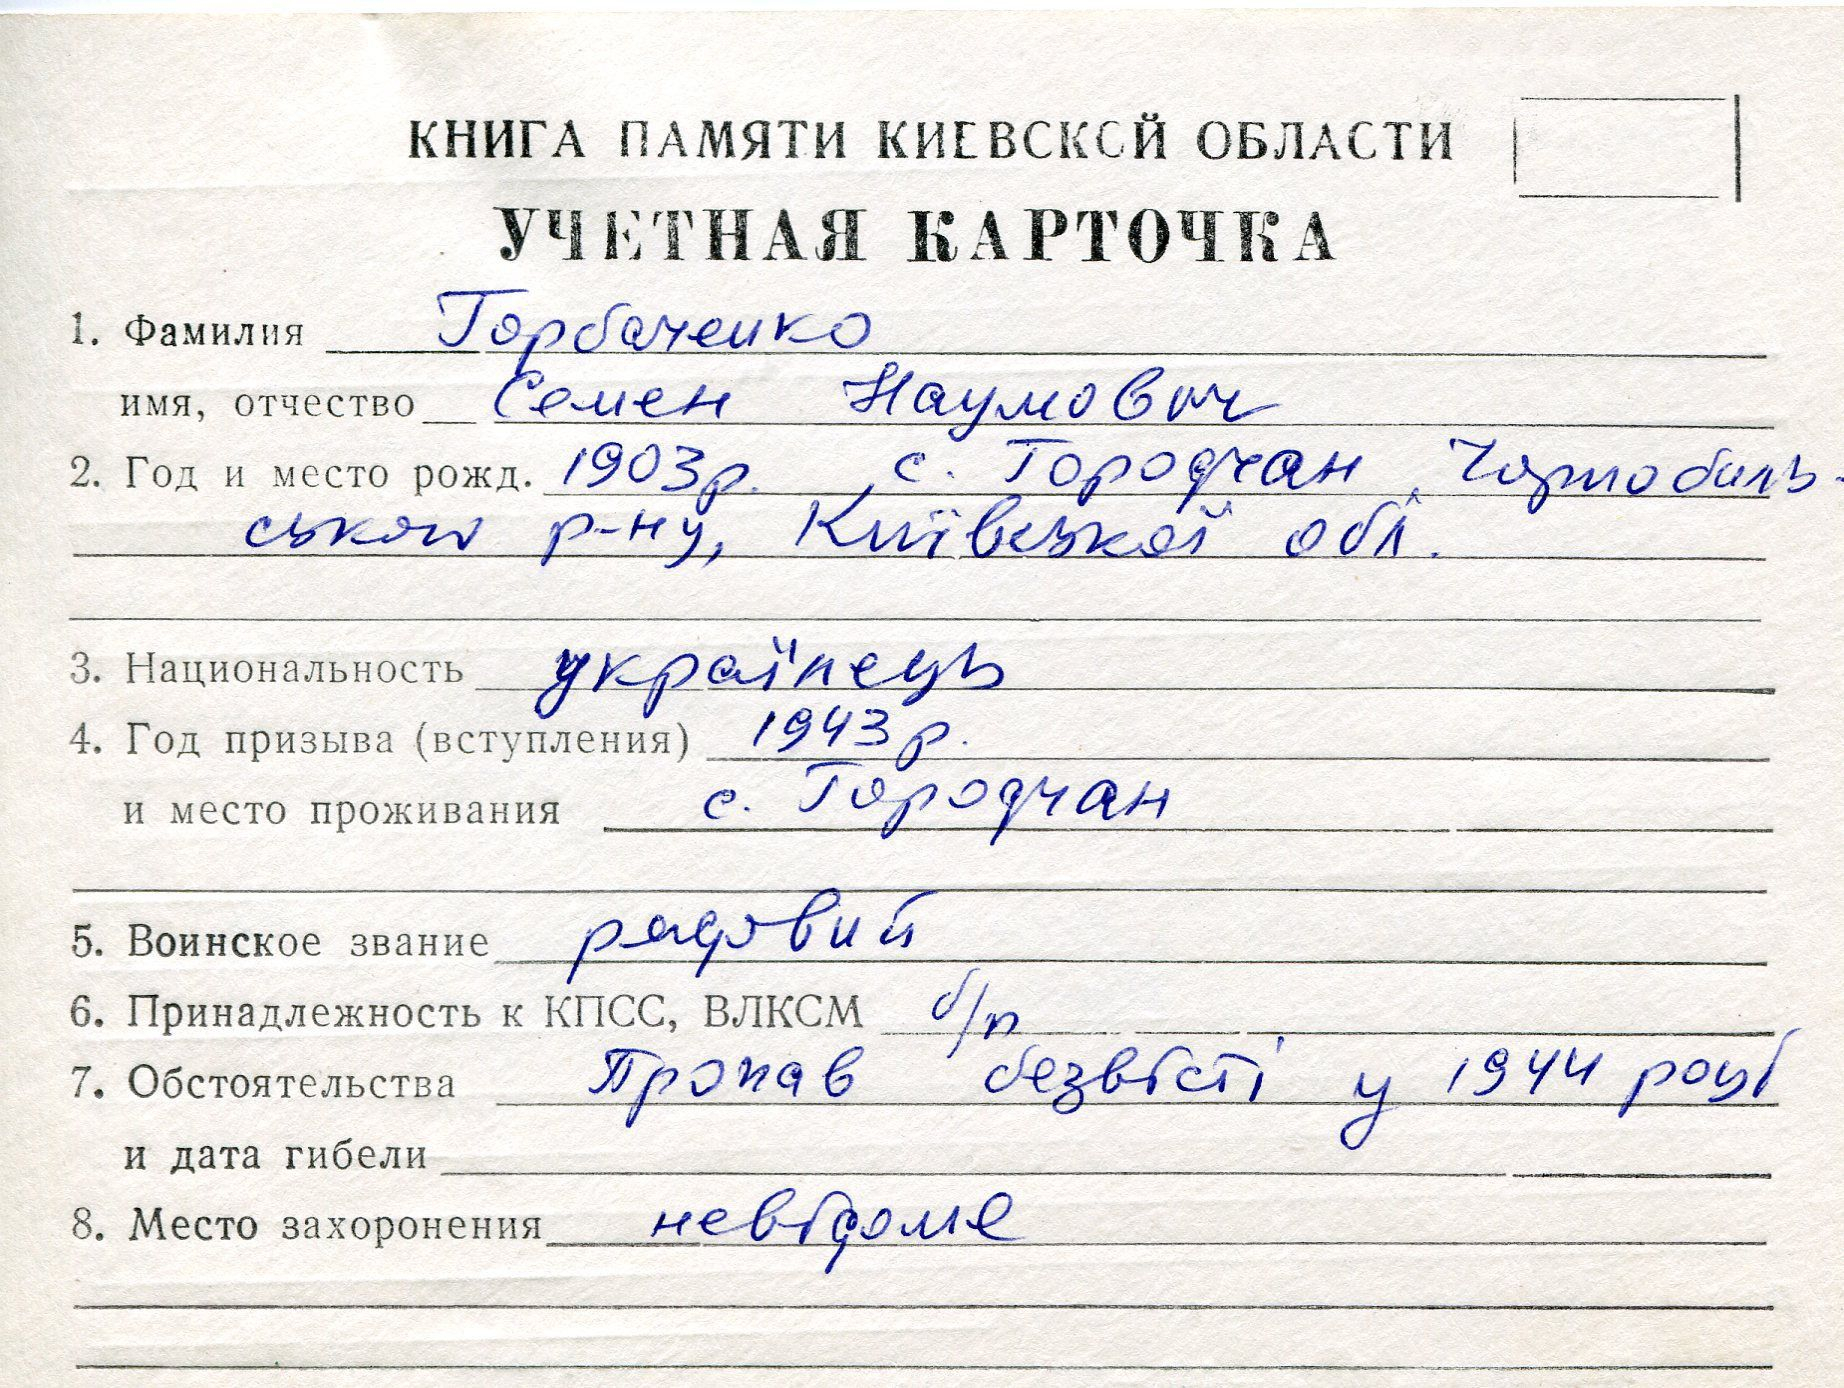 КНИГА ПАМЯТИ КИЕВСКОЙ ОБЛАСТИ
УЧЕТНАЯ КАРТОЧКА
1. Фамилия Горбаченко
имя, отчество Семен Наумович
2. Год и место рожд. 1903р. с. Городчан, Чорнобиль-
ського р-ну, Київської обл.
3. Национальность українець
4. Год призыва (вступления) 1943 р.
и место проживания с. Городчан
5. Воинское звание рядовий
6. Принадлежность к КПСС, ВЛКСМ б/п
7. Обстоятельства Пропав безвісті у 1944 році
и дата гибели
8. Место захоронения невідоме